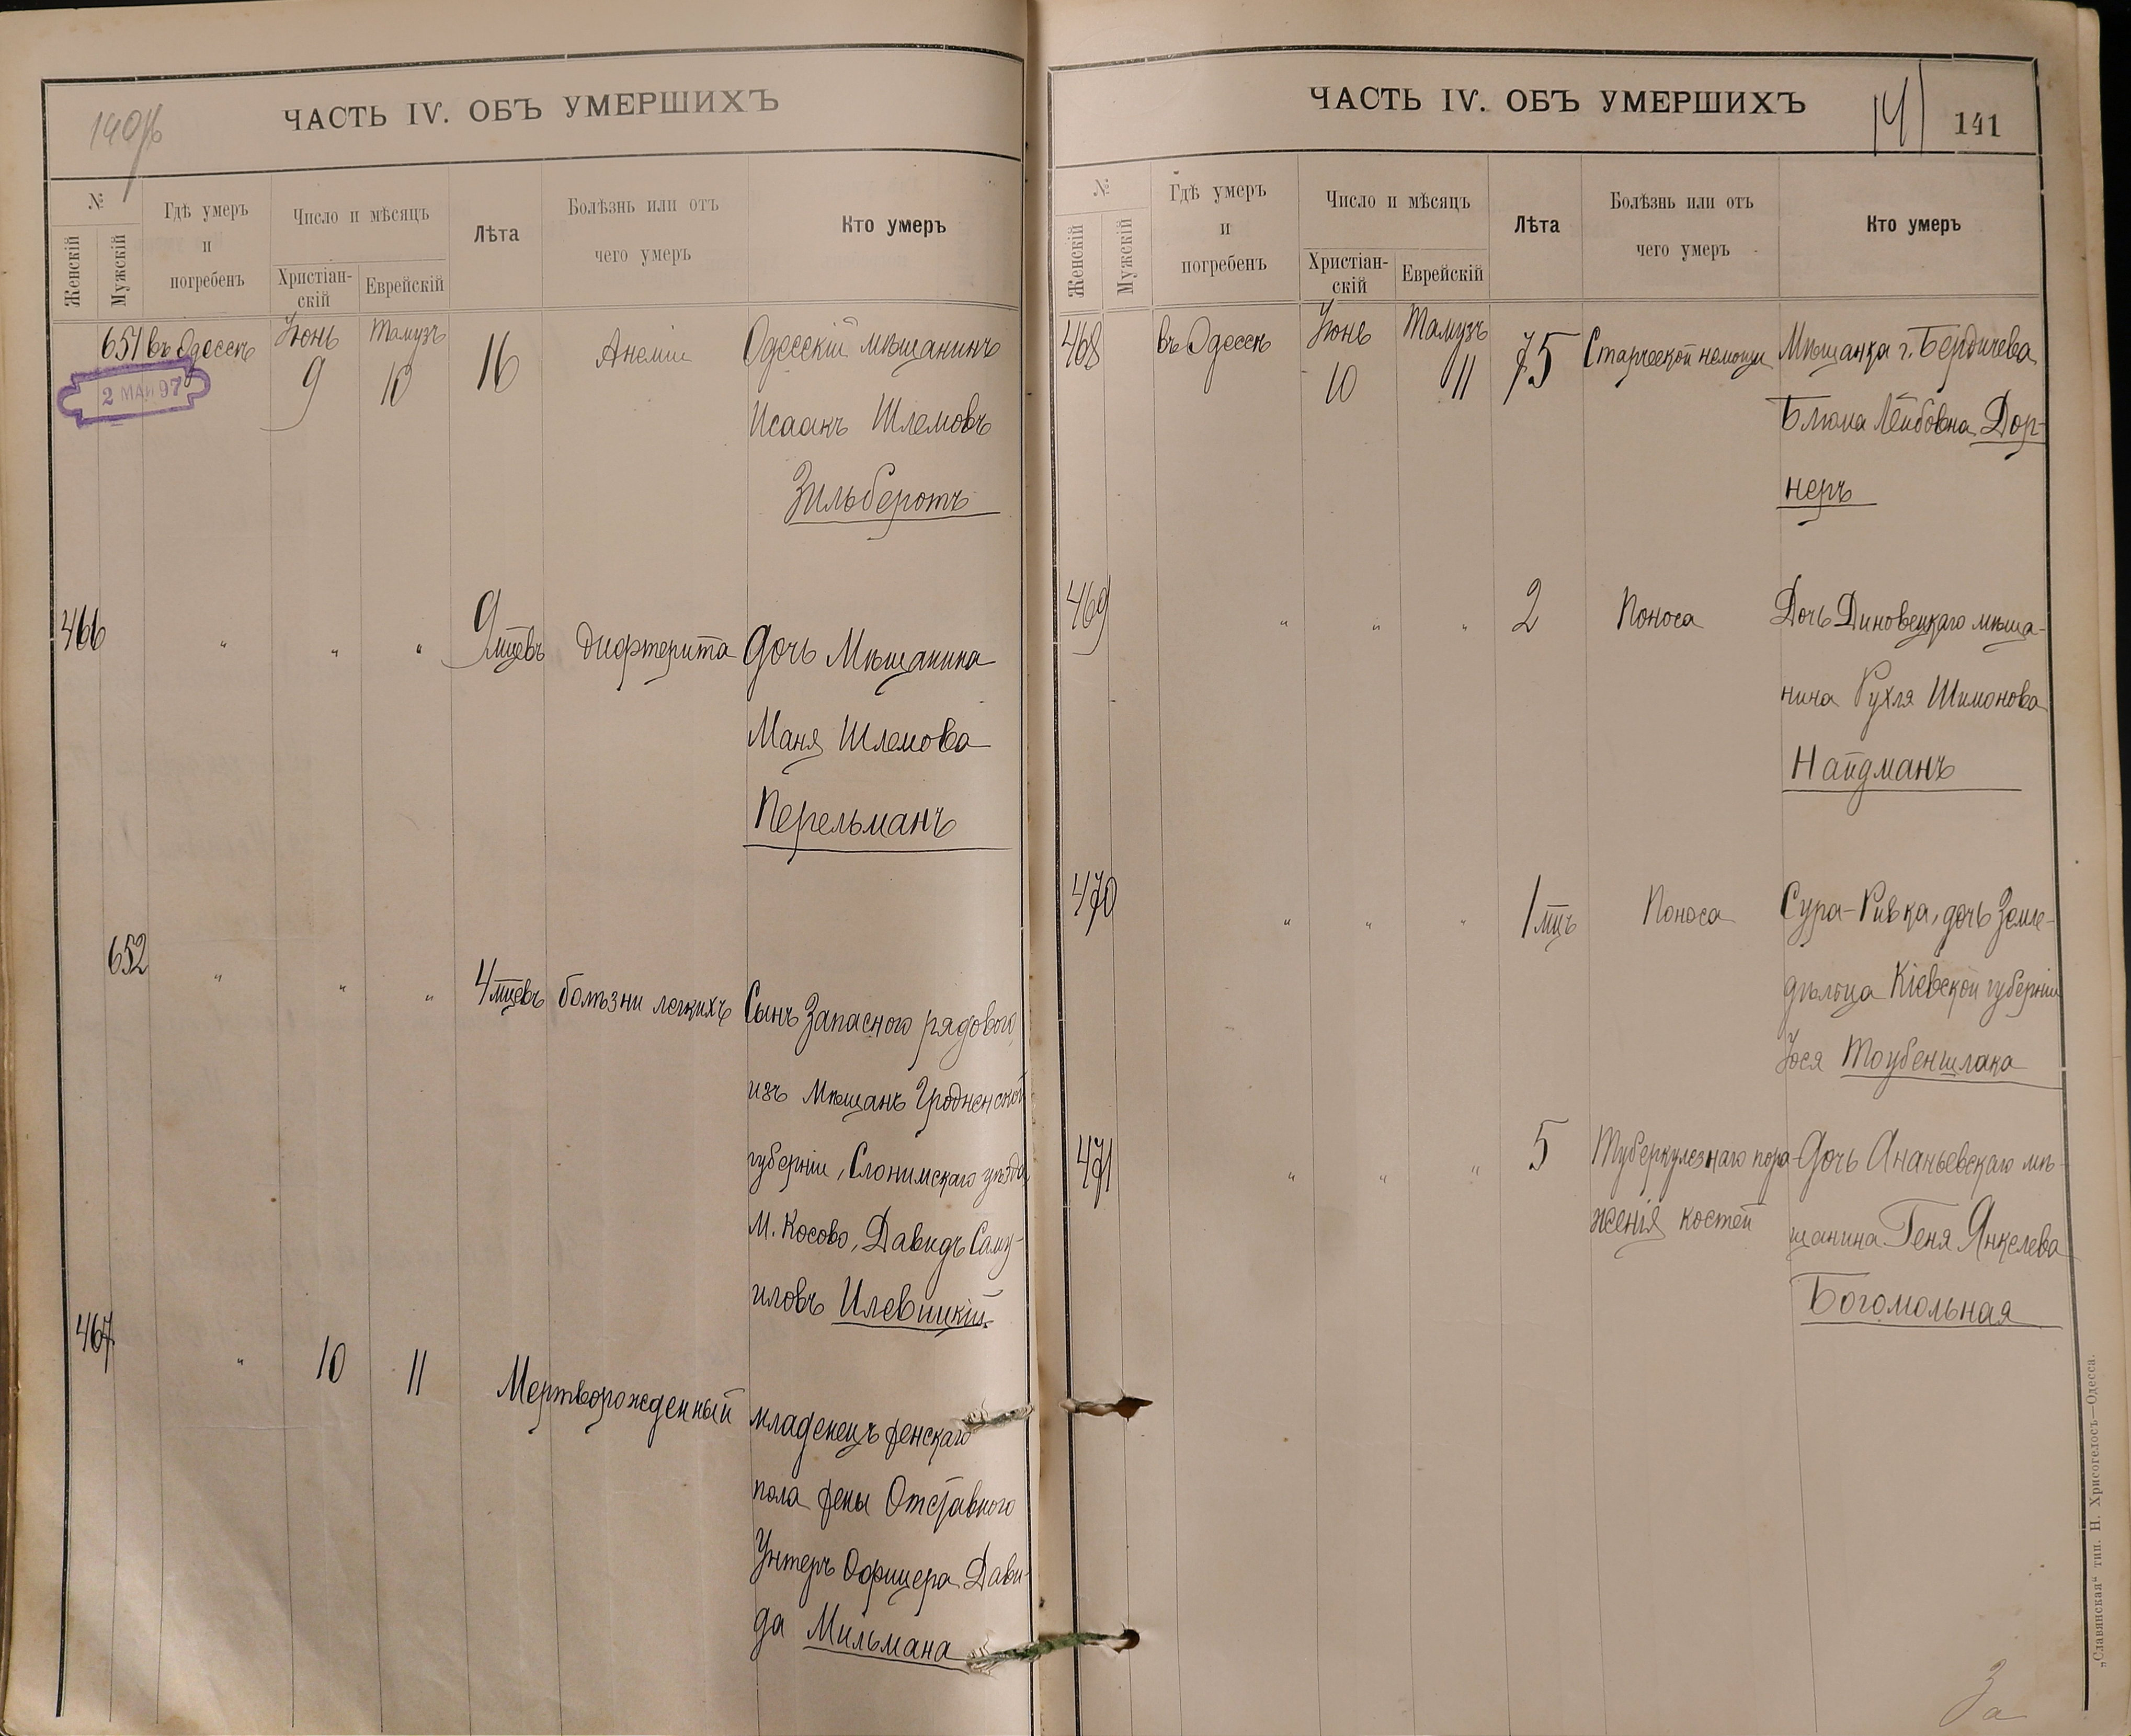 140 об
ЧАСТЬ IV. ОБЪ УМЕРШИХЪ
№
Женскій
Мужскій
Гдѣ умеръ
и
погребенъ
Число и мѣсяцъ
Христіан-
скій
Еврейскій
Лѣта
Болѣзнь или отъ
чего умеръ
Кто умеръ
651 въ Одессѣ Іюнь 9 Тамузъ 10 16 Анеміи Одесскій мѣщанинъ
2 МАЙ 97
Исаакъ Шлемовъ
Зильберотъ
466 " " " 9 мцевъ дифтерита дочь Мѣщанина
Маня Шлемова
Перельманъ
652 " " " 4 мцевъ болѣзни легкихъ Сынъ Запасного рядового
изъ Мѣщанъ Гродненской
губерніи, Слонимскаго уѣзда
М. Косово, Давидъ Саму-
иловъ Илевицкій
467 " 10 11 Мертворожденный младенецъ женскаго
пола жены Отставного
Унтеръ Офицера Дави-
да Мильмана
ЧАСТЬ IV. ОБЪ УМЕРШИХЪ
141 141
№
Женскій
Мужскій
Гдѣ умеръ
и
погребенъ
Число и мѣсяцъ
Христіан-
скій
Еврейскій
Лѣта
Болѣзнь или отъ
чего умеръ
Кто умеръ
468 въ Одессѣ Іюнь 10 Тамузъ 11 75 Старческой немощи Мѣщанка г. Бердичева
Блюма Лейбовна Дор-
неръ
469 " " " 2 Поноса Дочь Диновецкаго мѣща-
нина Рухля Шимонова
Найдманъ
470 " " " 1 мцъ Поноса Сура-Ривка, дочь Земле-
дѣльца Кіевской губерніи
Іося Тоубеншлака
471 " " " 5 Туберкулезнаго пора- Дочь Ананьевскаго мѣ-
женія костей щанина Геня Янкелева
Богомольная
За
„Славянская“ тип. Н. Хрисогелосъ—Одесса.